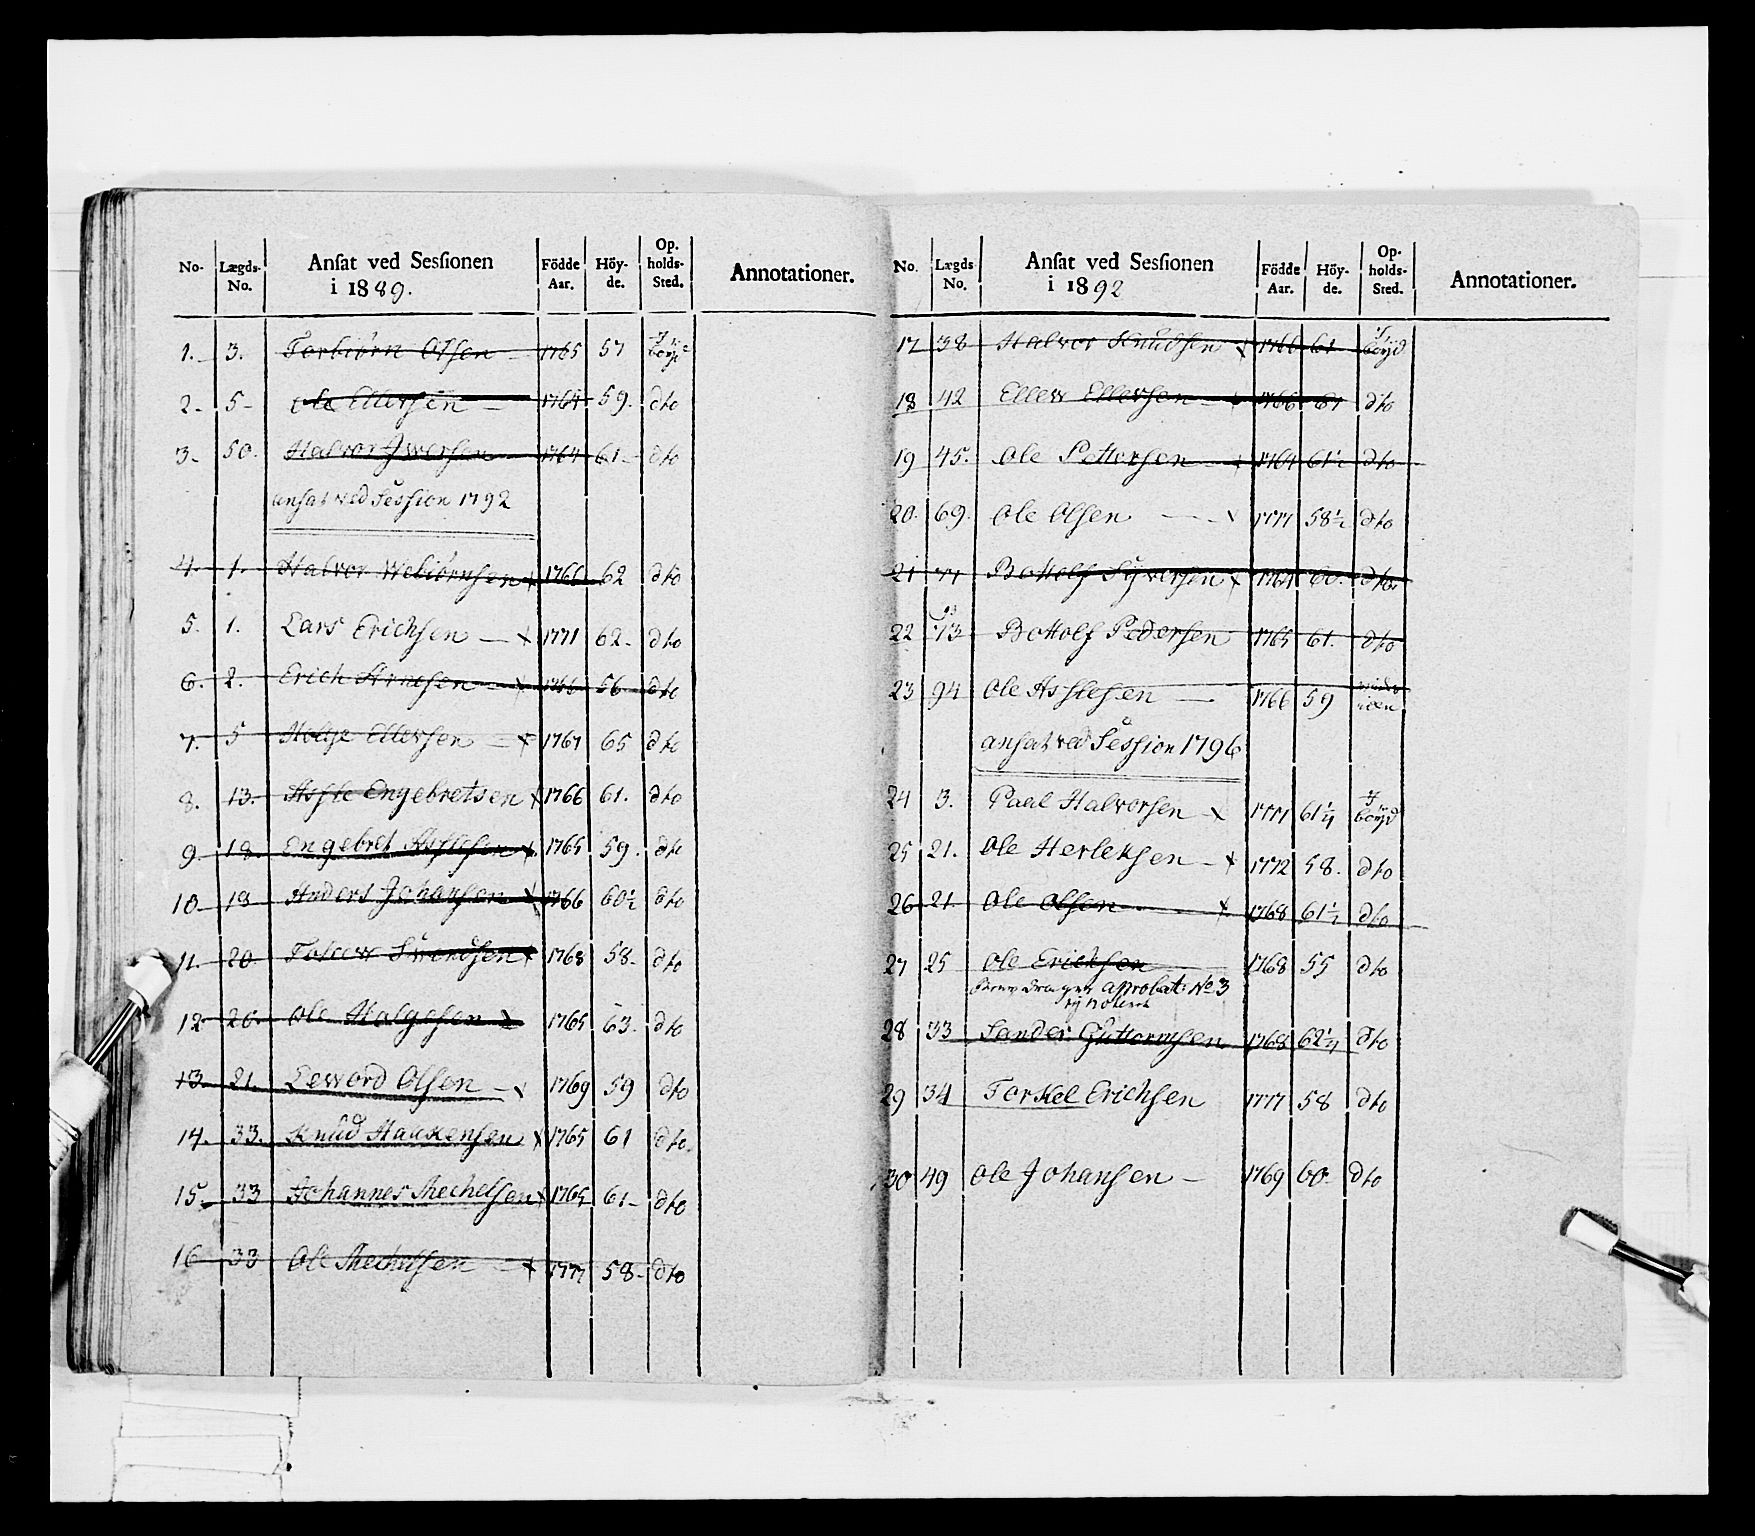 No. Lægds- No. Ansat ved Sessionen i 1889. Födde Aar. Höy- de. Op- holds- Sted. Annotationer.
1. 3. Torbiörn Olsen 1765 57 I bøyd
2. 5 Ole Ellersen 1764 59. dto
3. 50. Halvor Iwersen 1764 61 dto
ansat ved Session 1792
4. 1. Halvor Webiörnsen 1766 62 dto
5. 1. Lars Erichsen 1771 62. dto
6. 2. Erich Arnesen 1766 56 dto
7. 5 Holge Ellersen 1767 65 dto
8. 13. Asfle Engebretsen 1766 61. dto
9 18. Engebret Asflesen 1765 59. dto
10 19 Anders Johansen 1766 60½ dto
11. 20 Tosten Swendsen 1768 58. dto
12 20 Ole Halgesen 1765 63. dto
13 21. Leword Olsen 1769 59 dto
14. 33. Knud Haakensen 1765 61 dto.
15. 33 Johannes Mechelsen 1765 61 dto
16 33 Ole Mechelsen 1777 58 dto
No. Lægds No. Ansat ved Sessionen i 1892 Födde Aar. Höy- de. Op- holds- Sted. Annotationer.
17 38 Halvor Knudsen 1766 61 I bøyd
18 42 Ellew Ellewsen 1766 61 dto
19 45. Ole Pettersen 1764 61½ dto
20. 69. Ole Olsen 1777 58½ dto
21 71 Bottolf Sÿversen 1764 60. dto.
22 73 Bottolf Pedersen 1765 61. dto
23 94 Ole Asflesen 1766 59
ansat ved Session 1796
24 3. Paal Halvorsen 1771 61¼ I bøyd
25 21. Ole Herleksen 1772 58. dto
26 21. Ole Olsen 1768 61½ dto
27 25 Ole Erichsen 1768 55 dto
aprobat: No 3
28 33 Sander Guttormsen 1768 62¼ dto
29 34 Torkel Erichsen 1777 58 dto
30 49 Ole Johansen 1769 60. dto